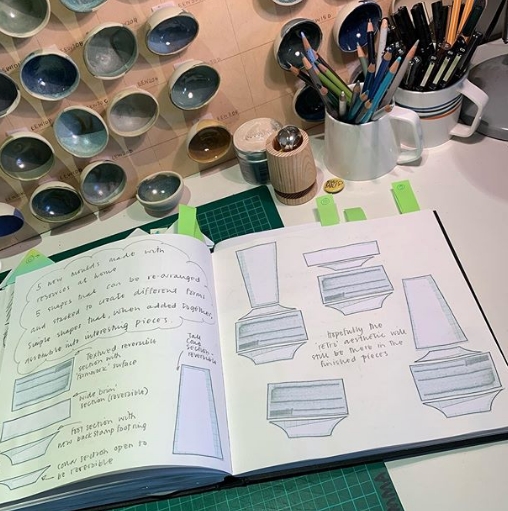 5 new moulds made with
resources at home
5 shapes that can be re-arranged
and stacked to create different forms
Simple shapes that, when added together,
assemble into interesting pieces.
Textured reversible
section with
surface
Tall
long
section,
reversible
wide 'brim'
section (reversible)
Foot section with
new backstamp footring
section open to
be reversible
hopefully the
'retro' aesthetic will
still be there in the
finished pieces